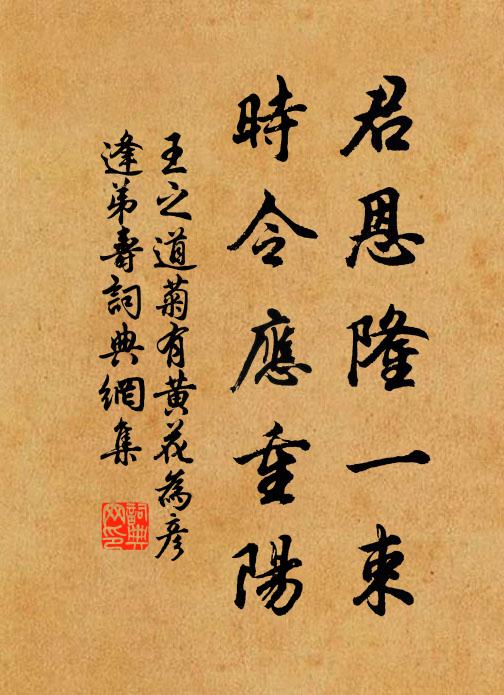 君恩隆一束
時令應重陽
王之道菊有黃花為彥
逢弟壽詞典網集
詞典网印